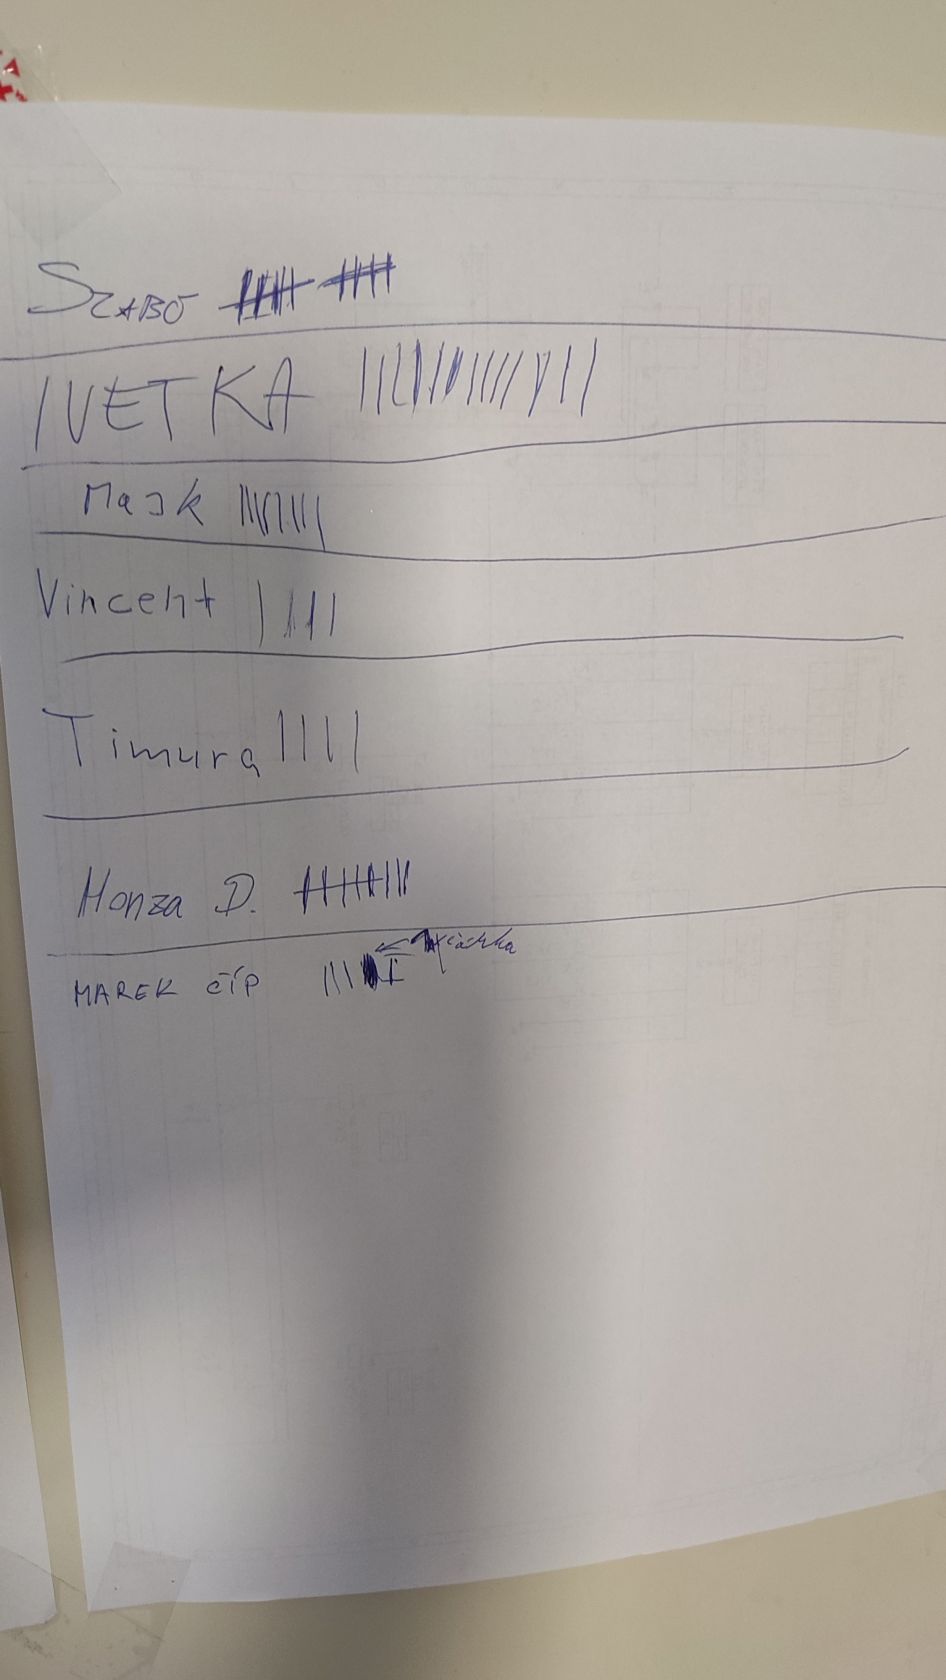 SZABO
IVETKA
Mask
Vincent
Timura
Honza D.
MAREK ČÍP